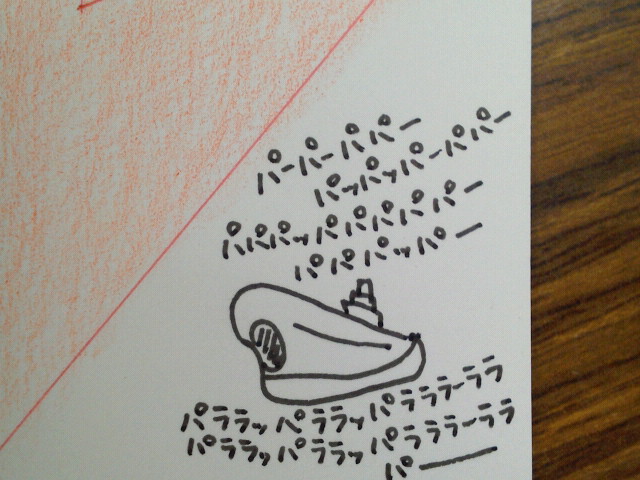 パーパーパパー
パッパッパーパパー
パパパッパパパパパー
パパパッパー
パララッパララッパラララーララ
パララッパララッパラララーララ
パー